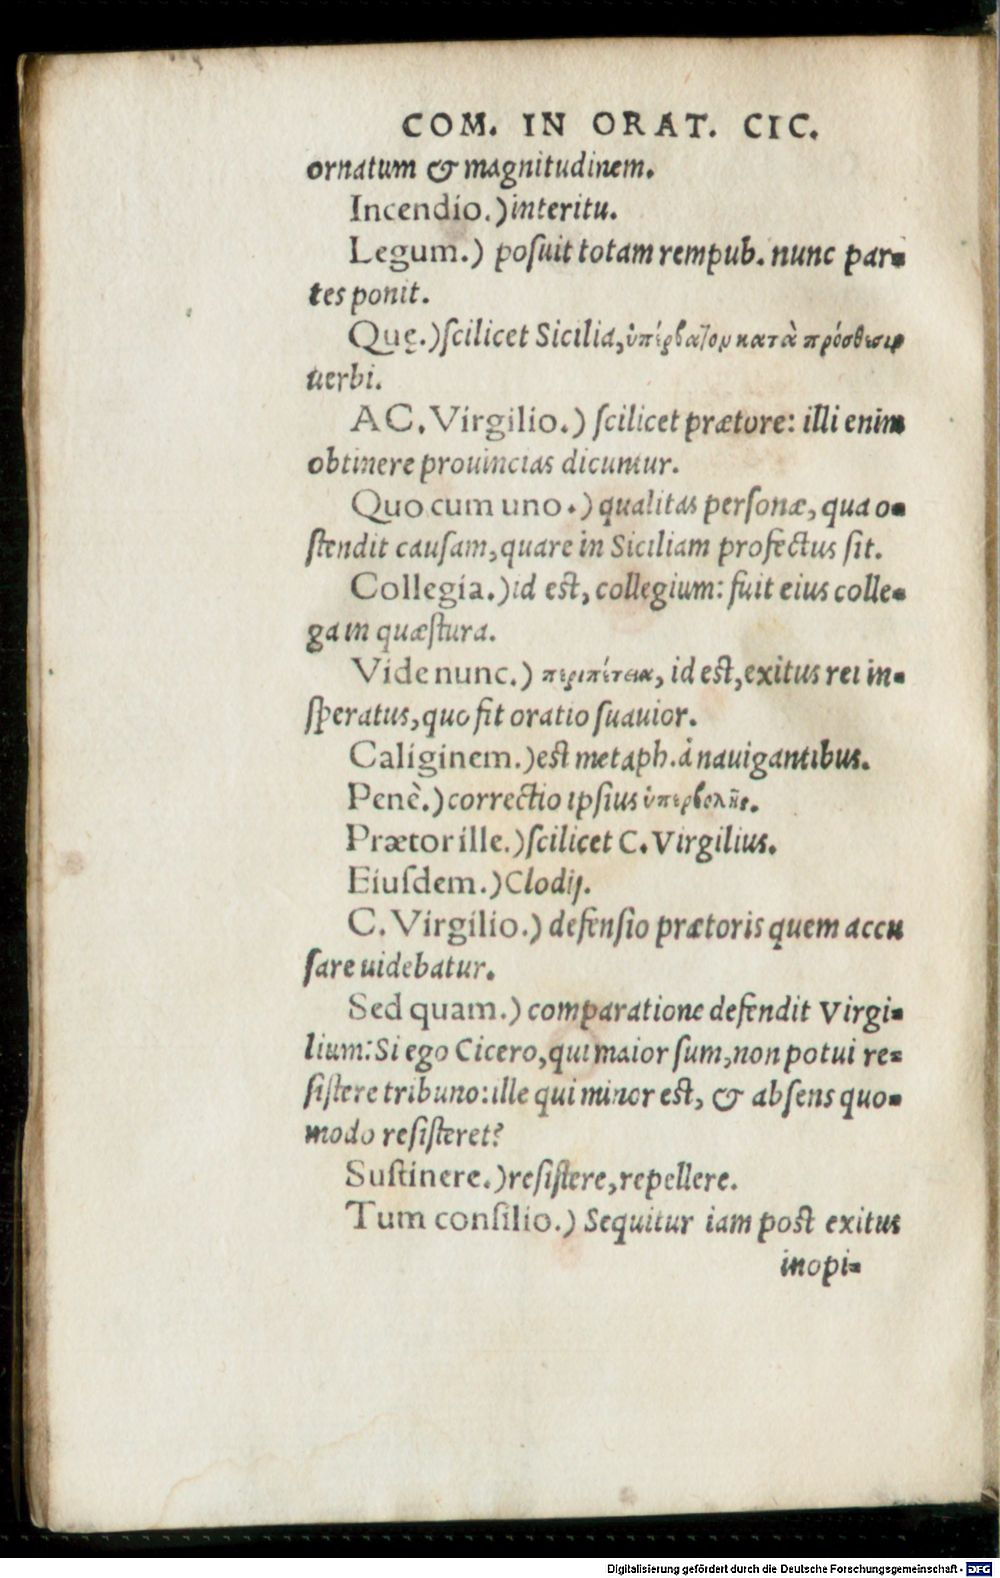 COM. IN ORAT. CIC.
ornatum & magnitudinem.
Incendio.) interitu.
Legum.) poſuit totam rempub. nunc par-
tes ponit.
Quę.) ſcilicet Sicilia, ὑπέρβατον κατὰ πρόσθεσιν
uerbi.
A C. Virgilio.) ſcilicet prætore: illi enim
obtinere prouincias dicuntur.
Quo cum uno.) qualitas perſonæ, qua o-
ſtendit cauſam, quare in Siciliam profectus ſit.
Collegia.) id eſt, collegium: fuit eius colle-
ga in quæſtura.
Vide nunc.) περιπέτεια, id eſt, exitus rei in-
ſperatus, quo fit oratio ſuauior.
Caliginem.) eſt metaph. à nauigantibus.
Penè.) correctio ipſius ὑπερβολῆς.
Prætor ille.) ſcilicet C. Virgilius.
Eiuſdem.) Clodij.
C. Virgilio.) defenſio prætoris quem accu
ſare uidebatur.
Sed quam.) comparatione defendit Virgi-
lium: Si ego Cicero, qui maior ſum, non potui re-
ſiſtere tribuno: ille qui minor eſt, & abſens quo-
modo reſiſteret?
Suſtinere.) reſiſtere, repellere.
Tum conſilio.) Sequitur iam poſt exitus
inopi-
Digitalisierung gefördert durch die Deutsche Forschungsgemeinschaft - DFG